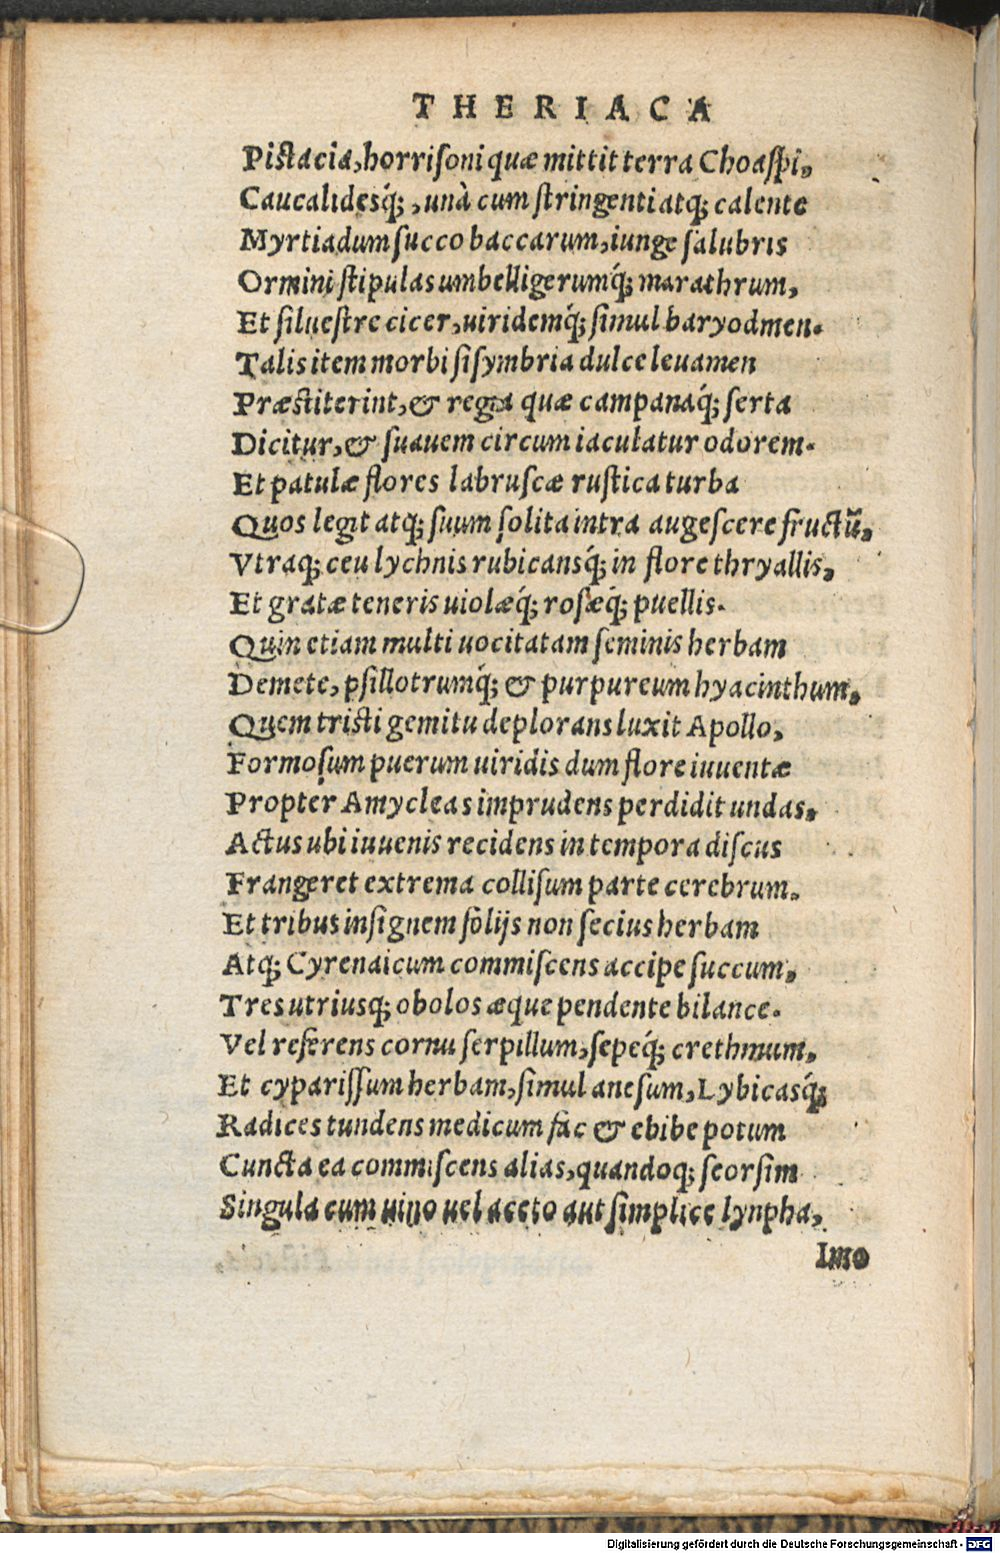 THERIACA
Pistacia, horrisoni quæ mittit terra Choaspi,
Caucalidesq́;, unà cum stringenti atq; calente
Myrtiadum succo baccarum, iunge salubris
Ormini stipulas umbelligerumq́; marathrum,
Et siluestre cicer, uiridemq́; simul baryodmen.
Talis item morbi sisymbria dulce leuamen
Præstiterint, & regia quæ campanaq́; serta
Dicitur, & suauem circum iaculatur odorem.
Et patulæ flores labruscæ rustica turba
Quos legit atq; suum solita intra augescere fructū,
Vtraq; ceu lychnis rubicansq́; in flore thryallis,
Et gratæ teneris uiolæq́; rosæq́; puellis.
Quin etiam multi uocitatam seminis herbam
Demete, psillotrumq́; & purpureum hyacinthum,
Quem tristi gemitu deplorans luxit Apollo,
Formosum puerum uiridis dum flore iuuentæ
Propter Amycleas imprudens perdidit undas,
Actus ubi iuuenis recidens in tempora discus
Frangeret extrema collisum parte cerebrum.
Et tribus insignem folijs non secius herbam
Atq; Cyrenaicum commiscens accipe succum,
Tres utriusq; obolos æque pendente bilance.
Vel referens cornu serpillum, sepeq́; crethmum,
Et cyparissum herbam, simul anesum, Lybicasq́;
Radices tundens medicum fac & ebibe potum
Cuncta ea commiscens alias, quandoq; seorsim
Singula cum uino uel aceto aut simplice lynpha,
Imo
Digitalisierung gefördert durch die Deutsche Forschungsgemeinschaft - DFG